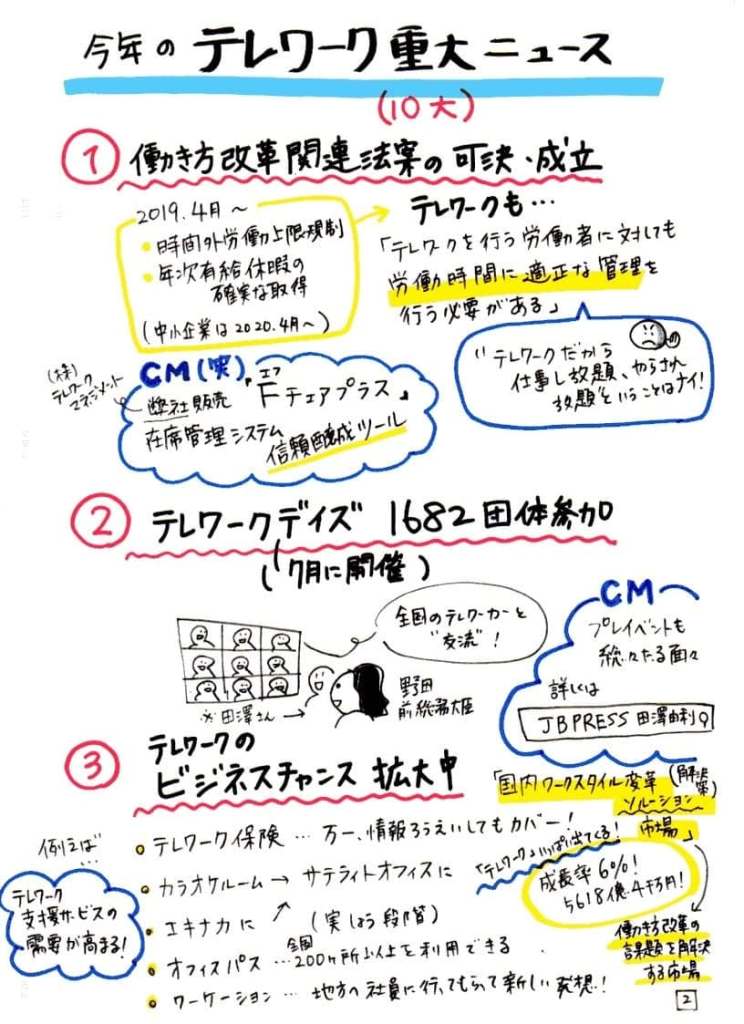 今年の テレワーク重大ニュース
(10大)
① 働き方改革関連法案の可決・成立
2019.4月〜
・時間外労働上限規制
・年次有給休暇の
確実な取得
(中小企業は2020.4月〜)
テレワークも…
「テレワークを行う労働者に対しても
労働時間に適正な管理を
行う必要がある」
"テレワークだから
仕事し放題、やらされ
放題"ということはナイ!
(株)
テレワーク
マネジメント
CM(笑)
弊社販売
エフ
『Fチェアプラス』
在席管理システム
信頼醸成ツール
② テレワークデイズ 1682団体参加
(7月に開催)
全国のテレワーカーと
"交流"!
※田澤さん→
野田
前総務大臣
CM
プレイベントも
続々たる面々
詳しくは
JBPRESS 田澤由利
③ テレワークの
ビジネスチャンス 拡大中
例えば…
テレワーク
支援サービスの
需要が高まる!
・テレワーク保険 … 万一、情報ろうえいしてもカバー!
・カラオケルーム → サテライトオフィスに
・エキナカに ↗ (実しょう段階)
・オフィスパス …全国200ヶ所以上を利用できる
・ワーケーション … 地方の社員に行ってもらって新しい発想!
「国内ワークスタイル変革(解決策)
ソルーション
市場」
「テレワーク」いっぱい出てくる!
成長率6%!
5618億4千万円!
働き方改革の
課題を解決
する市場
2